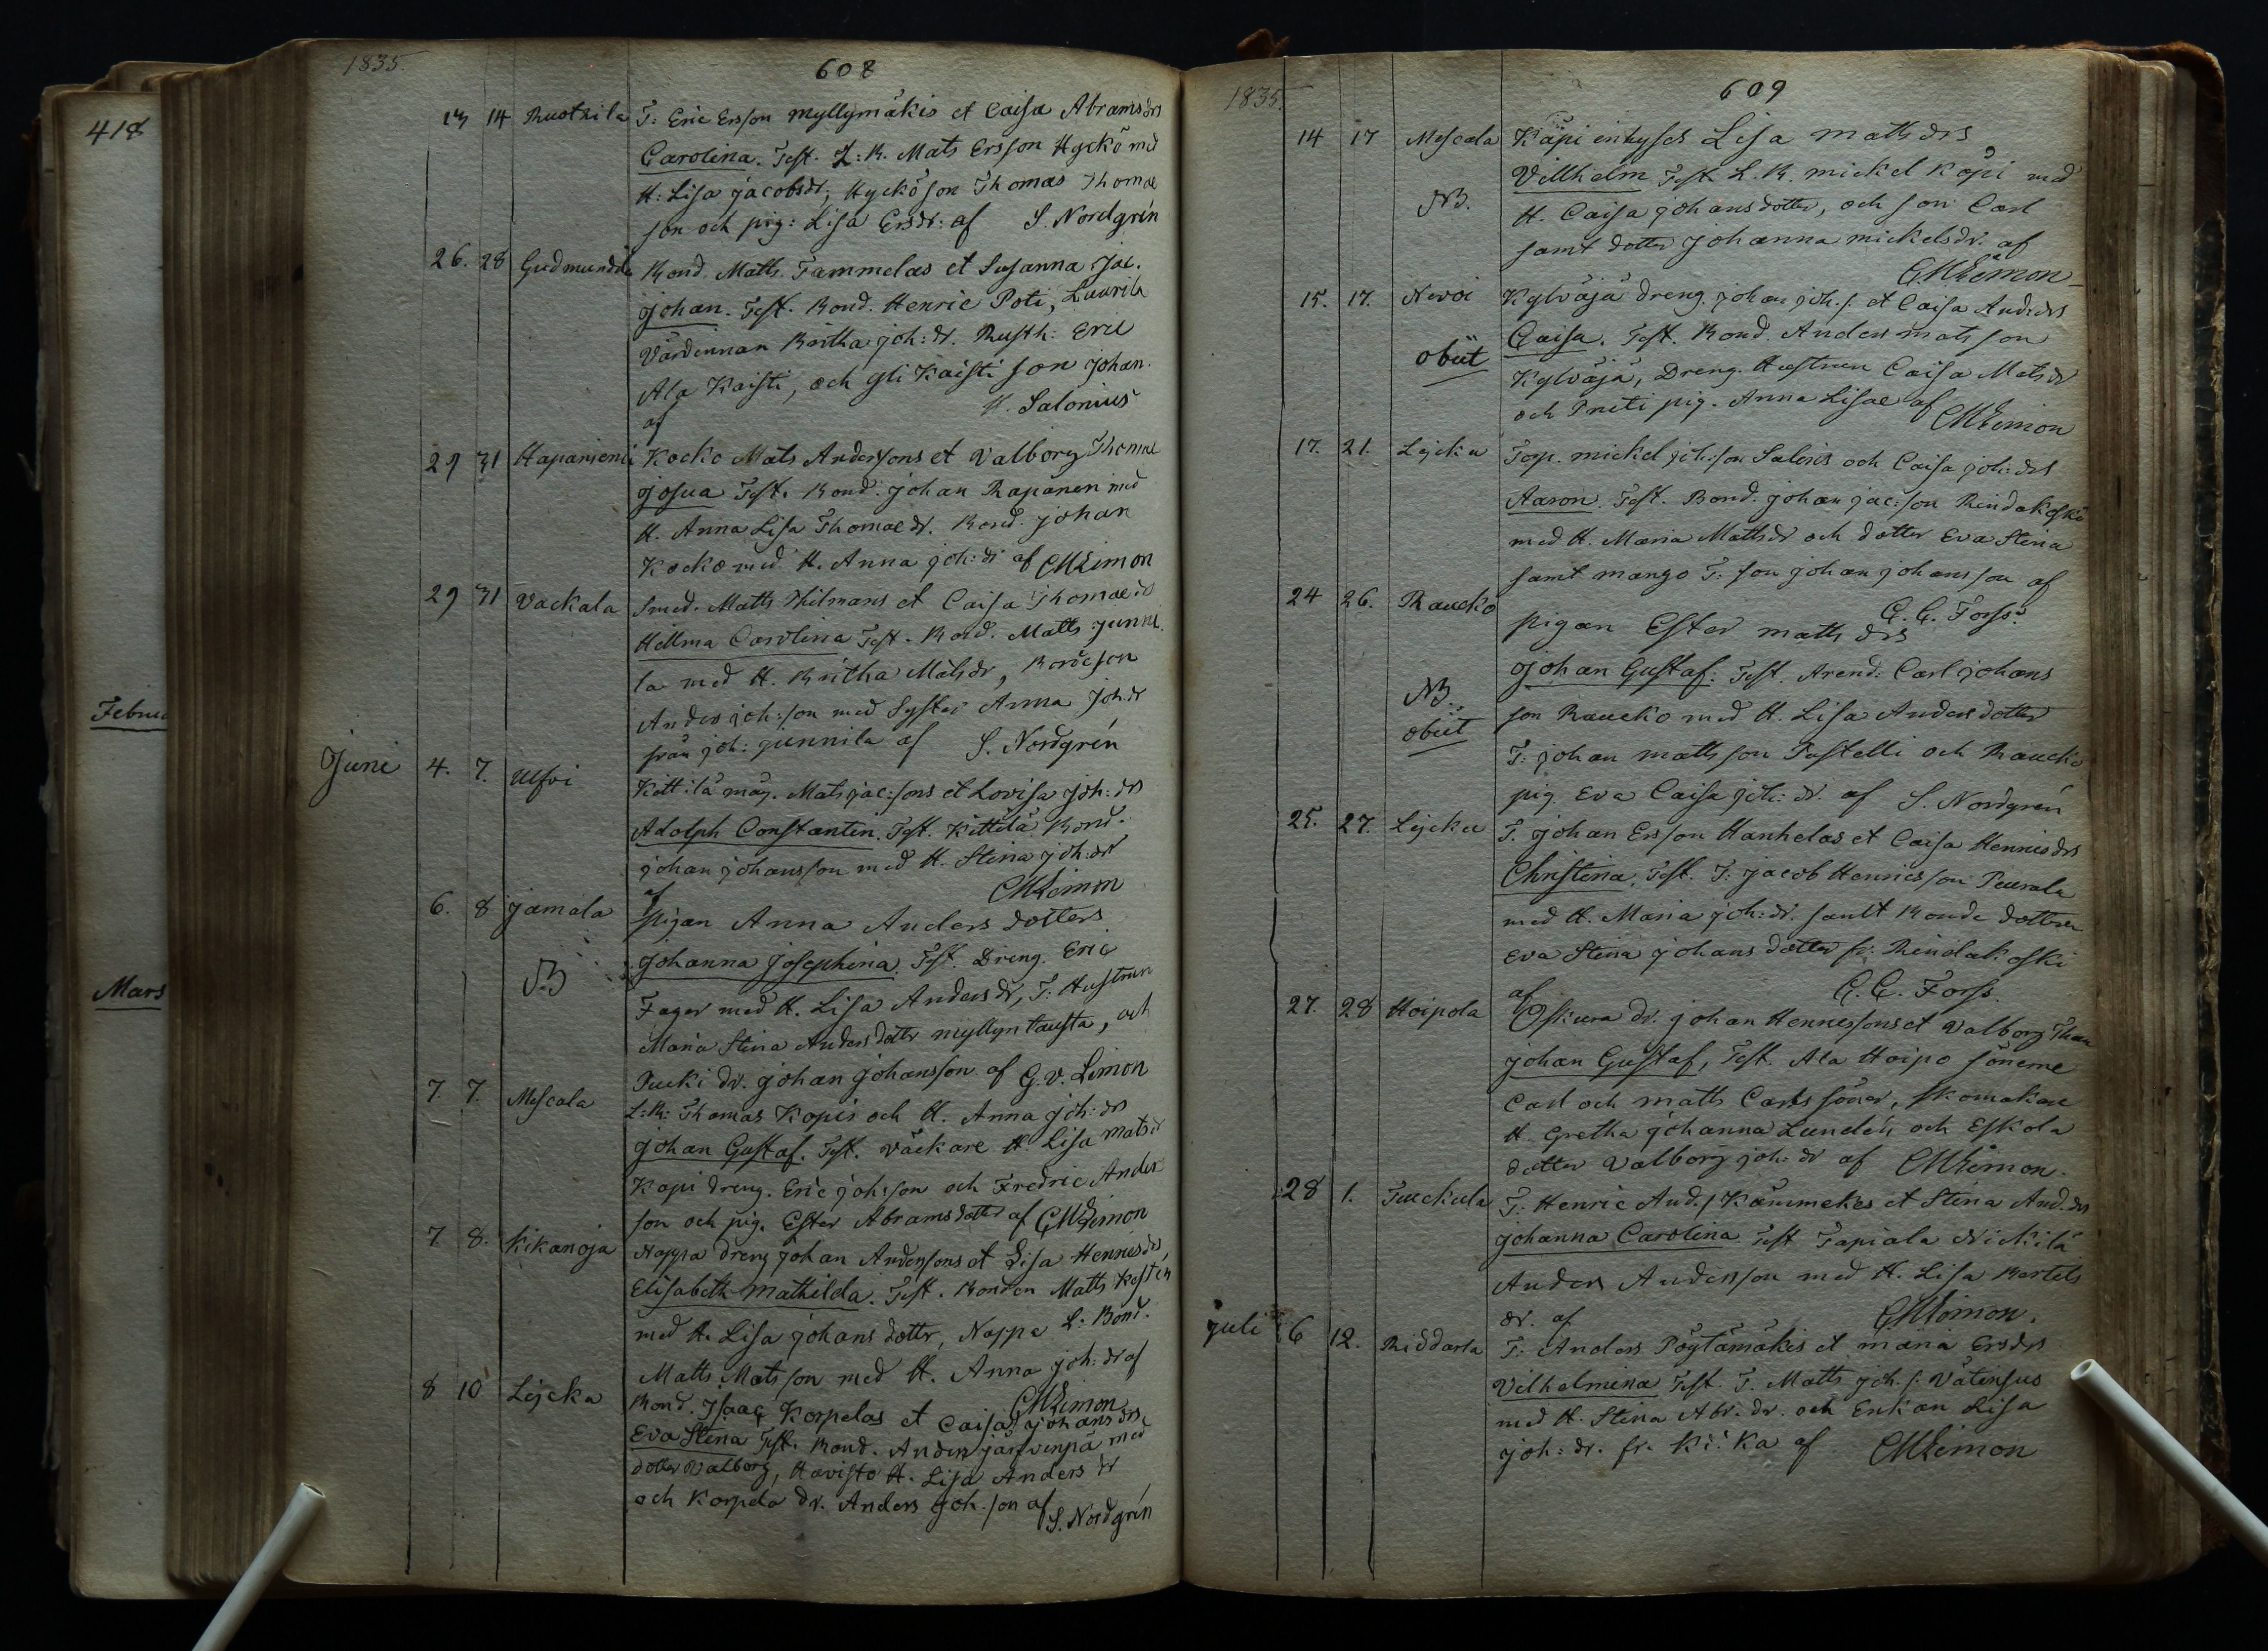 418
Februa
Mars
1835.
608
13 14 Rusthila T: Eric Ersson Myllymäkis et Caisa Abramsdrs
Carolina. Test. L:B. Mats Ersson Hyckö med
H: Lisa Jacobsdr; Hyckö son Thomas Thomae
son och pig: Lisa Ersdr: af S. Nordgrén
26. 28 Gudmundila Bond. Matts Tammelas et Susanna Jac.
Johan. Test. Bond. Henric Poti, Laurila
Värdinnan Britha Joh: dr. Rusth: Eric
Ala Kaisti, och Yli Kaisti son Johan.
af H. Salonius
29 31 Hapaniemi Kocko Mats Anderssons et Valborg Thomae
Josua Test. Bond. Johan Rapanen med
H. Anna Lisa Thomaedr. Bond. Johan
Kocko med H. Anna Joh: dr af CMLimon
29 31 Vackala Smed. Matts Hilmans et Caisa Thomaedr
Hillma Carolina Test. Bond. Matts Junni
la med H. Britha Matsdr, Bondeson
Anders Joh: son med Syster Anna Joh. dr
från Joh: Junnila af S. Nordgrén
Juni 4. 7. Ulfvi Kittilä måg. Mats Jac: sons et Lovisa Joh: drs
Adolph Constantin. Test. Kittilä Bond.
Johan Johansson med H. Stina Joh: dr
af CMLimon
6. 8 Jamala pigan Anna Anders dotters
NB Johanna Josephina. Test. Dreng. Eric
Fager med H. Lisa Andersdr, T: Hustrun
Maria Stina Anders dotter Myllyntausta, och
Pucki dr. Johan Johansson af G. V. Limon
7. 7. Mescala L:B: Thomas Kopis och H. Anna Joh: drs
Johan Gustaf. Test. väckare H. Lisa Matsdr
Kopi dreng. Eric Joh: son och Fredric Anders
son och pig. Ester Abrams dotter af CMLimon
7. 8. Kikanoja Nappa dreng Johan Anderssons et Lisa Henricsdrs,
Elisabeth Mathilda. Test. Bonden Matts Kestin
med H. Lisa Johans dotter, Nappa L: Bond.
Matts Matsson med H. Anna Joh: dr af
CMLimon
8 10 Lejcka Bond. Isaac Korpelas et Caisa Johans drs
Eva Stina Test. Bond. Anders Järfvenpä med
dotter Valborg, Havisto H. Lisa Anders dr
och Korpela dr. Anders Joh. son af S. Nordgrén
1835.
609
14 17 Mescala Käpi enhyses Lisa Matts drs
NB. Villhelm Test. L. B. Mickel Köpi med
H. Caisa Johansdotter, och son Carl
samt dotter Johanna Mickelsdr. af
CMLimon
15. 17. Nevoi Kylväjä dreng. Johan Joh. s. et Caisa And: drs
obiit Caisa. Test. Bond. Anders Matsson
Kylväjä, Dreng. Hustrun Caisa Matsdr
och Prieti pig. Anna Lisae af CMLimon
17. 21. Lejcka Torp. Mickel Joh: son Salois och Caisa Joh: drs
Aaron. Test. Bond. Johan Jac: son Rindakoski
med H. Maria Mattsdr och dotter Eva Stina
samt Mango T: son Johan Johansson af
G. G. Forss:
24 26. Raucko pigan Ester Matts drs
NB. Johan Gustaf. Test. Arend: Carl Johans
obiit son Raucko med H. Lisa Anders dotter
T: Johan Mattsson Pastelli och Raucko
pig. Eva Caisa Joh: dr. af S. Nordgrén
25. 27. Lejcka T. Johan Ersson Hanhelas et Caisa Henricsdrs
Christina. Test. T: Jacob Henricsson Peurala
med H. Maria Joh: dr. samt Bonde dottren
Eva Stina Johans dotter fr: Rindakoski
af G. G. Forss.
27. 28 Hoipola Eskura dr. Johan Henricssons et Valborg Thom
Johan Gustaf, Test. Ala Hoipo sönerne
Carl och Matts Carlssöner, skomakare
H. Gretha Johanna Lundén och Eskola
dotter Valborg Joh: dr af CMLimon.
28 1. Tuckula T: Henric And. s Kämmekes et Stina And. drs
Johanna Carolina Test Tapiala Nickilä
Anders Andersson med H. Lisa Bertels
dr. af CMLimon.
Juli 6 12. Riddarla T: Anders Pöytämäkis et Maria Ersdrs
Vilhelmina Test. T. Matts Joh. s. Vätinsuo
med H. Stina Abr. dr. och Enkan Lisa
Joh: dr. fr. Kiika af CMLimon